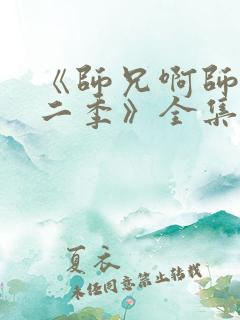 《師兄啊師
二季》全集
夏衣
未经同意禁止转载